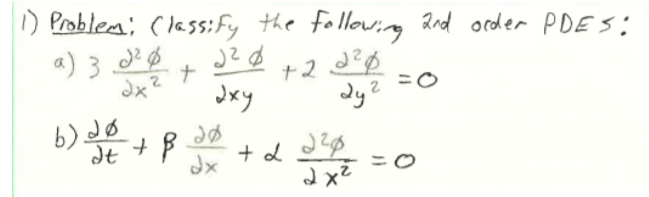 1) Problem: Classify the following 2nd order PDES:
a) 3 ∂²ø/∂x² + ∂²ø/∂xy + 2 ∂²ø/∂y² = 0
b) ∂ø/∂t + β ∂ø/∂x + α ∂²ø/∂x² = 0